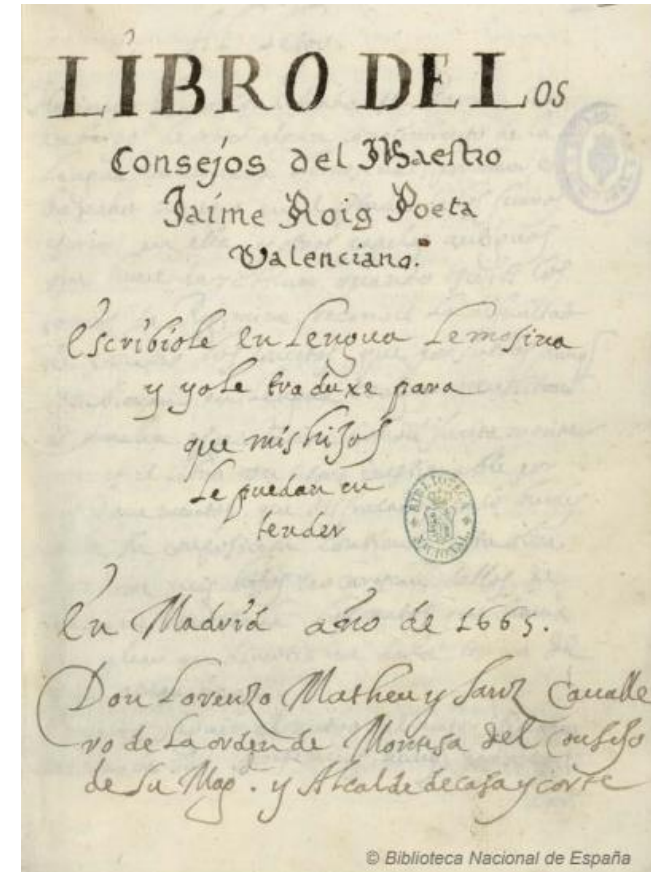 LIBRO DE Los
Consejos del Maestro
Jaime Roig Poeta
Valenciano.
Escribiole en Lengua Lemosina
y yo le traduxe para
que mis hijos
le puedan en
tender
En Madrid año de 1665.
Don Lorenzo Matheu y Sanz Cavalle
ro de la orden de Montesa del Consejo
de Su Mag. y Alcalde de casa y corte
BIBLIOTECA
NACIONAL
© Biblioteca Nacional de España